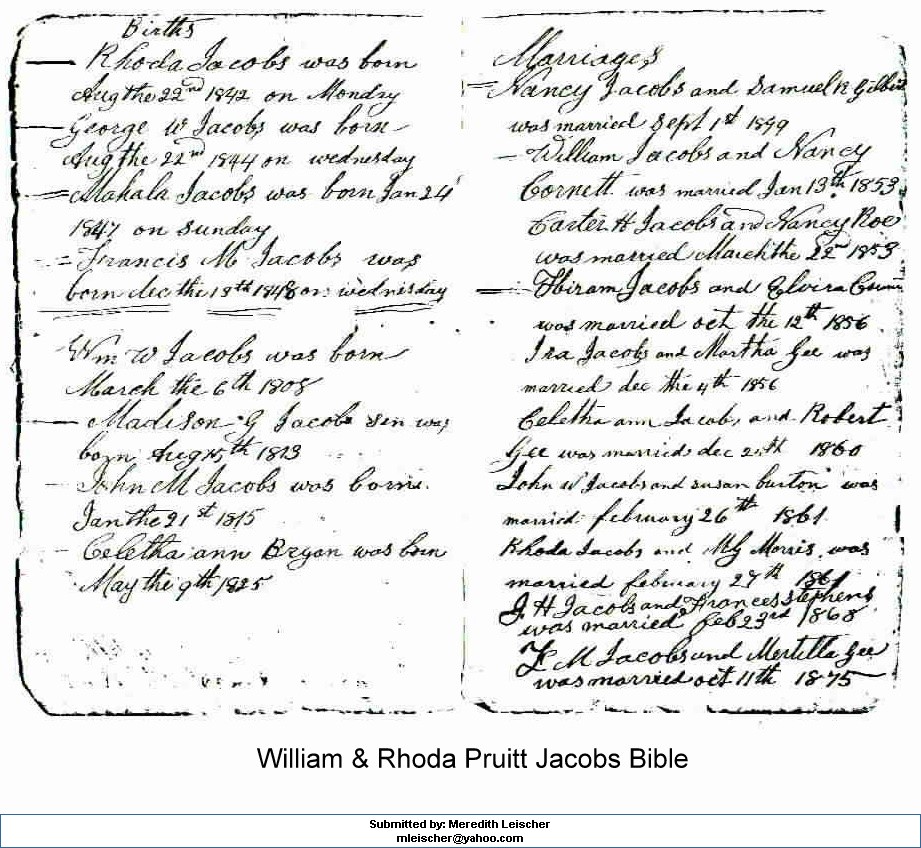 Births
Rhoda Jacobs was born
Aug the 22nd 1842 on Monday
George W Jacobs was born
Aug the 22nd 1844 on wednesday
Mahala Jacobs was born Jan 24
1847 on Sunday
Francis M Jacobs was
born dec the 13th 1848 on wednesday
Wm W Jacobs was born
March the 6th 1808
Madison G Jacobs sen was
born Aug 15th 1813
John M Jacobs was born
Jan the 21st 1815
Celetha ann Bryan was born
May the 9th 1825
Marriages
Nancy Jacobs and Samuel R
was married Sept 1st
William Jacobs and Nancy
Cornett was married Jan 13th 1853
Carter H Jacobs and Nancy Roe
was married March the 22nd 1853
Hiram Jacobs and Elvira
was married oct the 12th 1856
Ira Jacobs and Martha Gee was
married dec the 4th 1856
Celetha ann Jacobs and Robert
Gee was married dec 1860
John W Jacobs and susan burton was
married february 26th 1861
Rhoda Jacobs and MG Morris was
married february 27th 1861
J H Jacobs and Frances Stephens
was married feb 23rd 1868
F M Jacobs and Mertilla Gee
was married oct 11th 1875
William & Rhoda Pruitt Jacobs Bible
Submitted by: Meredith Leischer
mleischer@yahoo.com